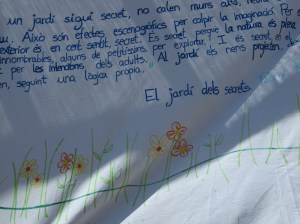 un jardí sigui secret, no calen murs alts,
Això són efectes escenogràfics per colpir la imaginació. Per
exterior és, en cert sentit, secret. És secret perquè la natura és plena
innombrables, alguns de petitíssims per explorar. I és secret, en el
per les intencions dels adults. Al jardí els nens projecten
seguint una lògica pròpia.
El jardí dels secrets